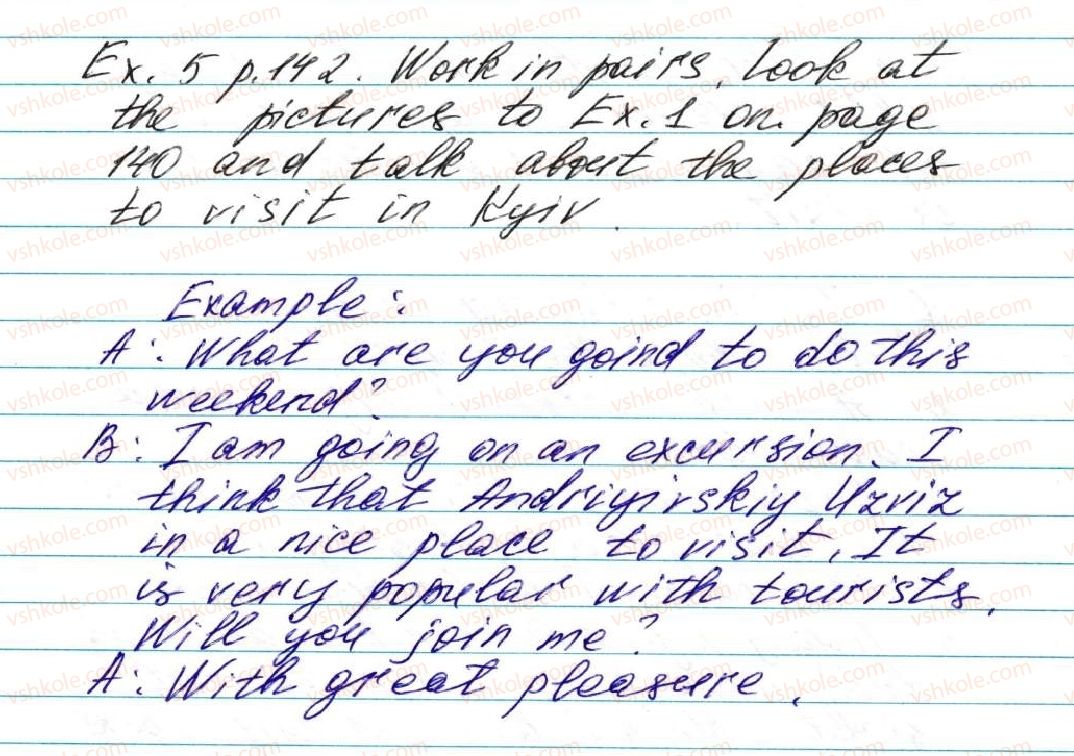 Ex. 5 p. 142. Work in pairs. Look at
the pictures to Ex. 1 on page
140 and talk about the places
to visit in Kyiv.
Example:
A: What are you goind to do this
weekend?
B: I am going on an excursion. I
think that Andriyivskiy Uzviz
in a nice place to visit. It
is very popular with tourists.
Will you join me?
A: With great pleasure.